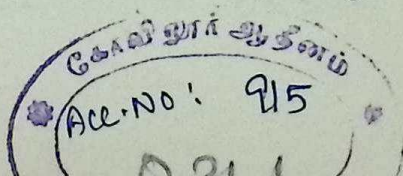 கோவிலூர் ஆதீனம்
Acc.No: 915